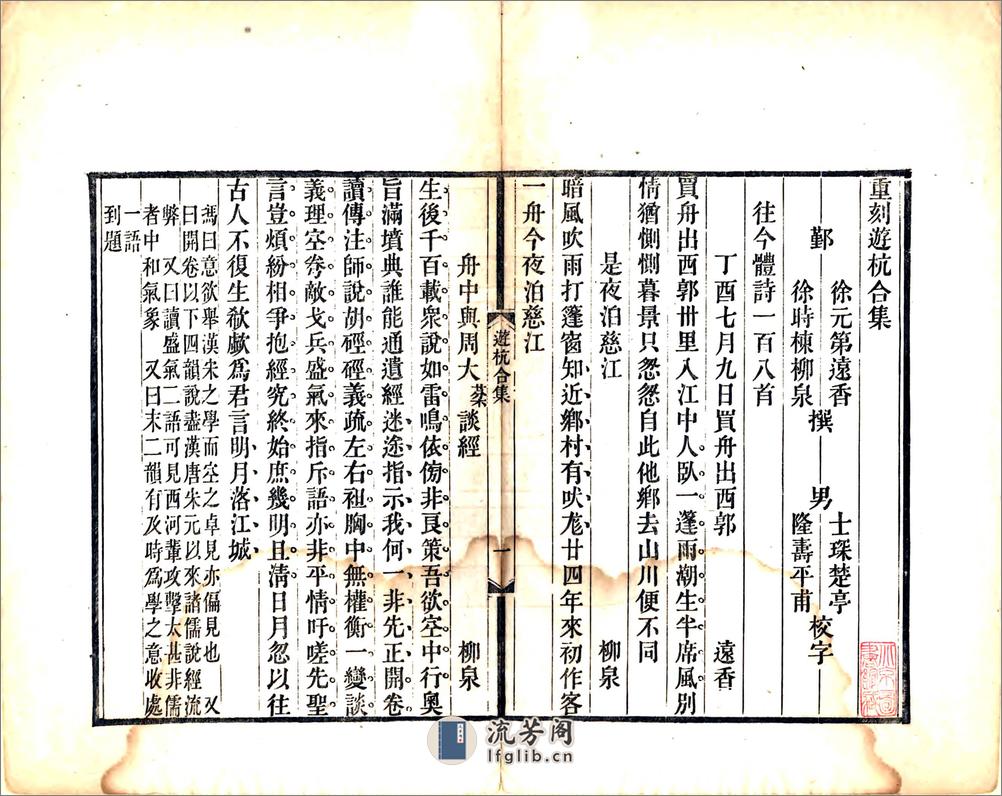 重刻遊杭合集
鄞
徐元第遠香
徐時棟柳泉
撰
男
士琛楚亭
隆壽平甫
校字
往今體詩一百八首
丁酉七月九日買舟出西郭　遠香
買舟出西郭卅里入江中人臥一篷雨潮生半席風別
情猶惻惻暮景只怱怱自此他鄉去山川便不同
是夜泊慈江　柳泉
暗風吹雨打篷窗知近鄉村有吠尨廿四年來初作客
一舟今夜泊慈江
遊杭合集
一
舟中與周大談經　柳泉
生後千百載衆說如雷鳴依傍非良策吾欲空中行奧
旨滿墳典誰能通遺經迷途指示我何一非先正開卷
讀傳注師說胡硜硜義疏左右祖胸中無權衡一變談
義理空劵敵戈兵盛氣來指斥語亦非平情吁嗟先聖
言豈煩紛相爭抱經究終始庶幾明且淸日月忽以往
古人不復生欷歔爲君言明月落江城
馮曰意欲舉漢宋之學而空之卓見亦偏見也　又
曰開卷以下四韻說盡漢唐宋元以來諸儒說經流
弊　又曰讀盛氣二語可見西河輩攻擊太甚非儒
者中和氣象　又曰末二韻有及時爲學之意收處
一語
到題
流芳阁
lfglib.cn